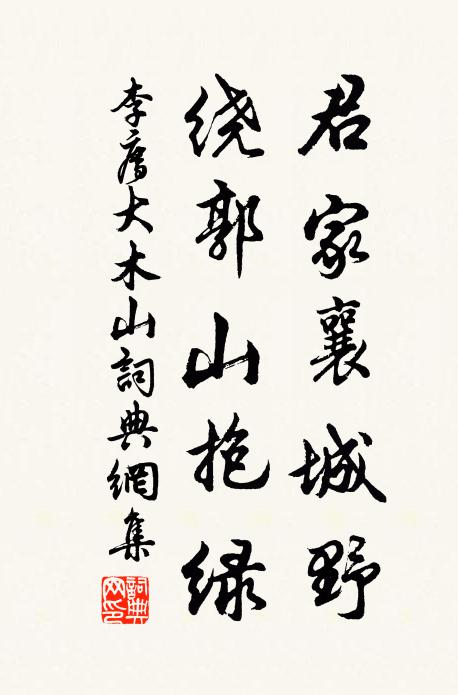 君家襄城野
绕郭山抱绿
李廌大木山詞典網集
詞典网印